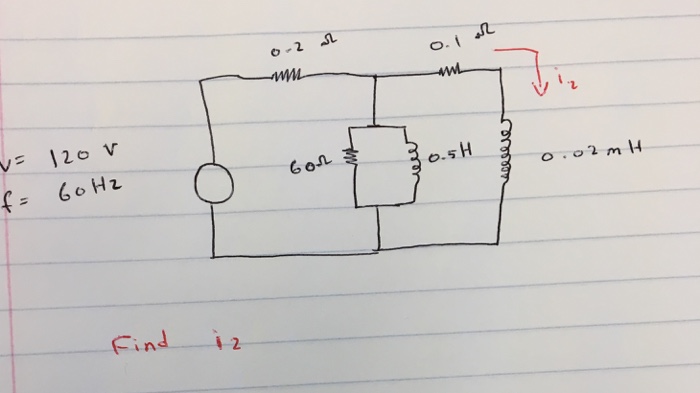 0.2 Ω
0.1 Ω
i2
V= 120 V
f= 60Hz
60Ω
0.5H
0.02mH
Find i2